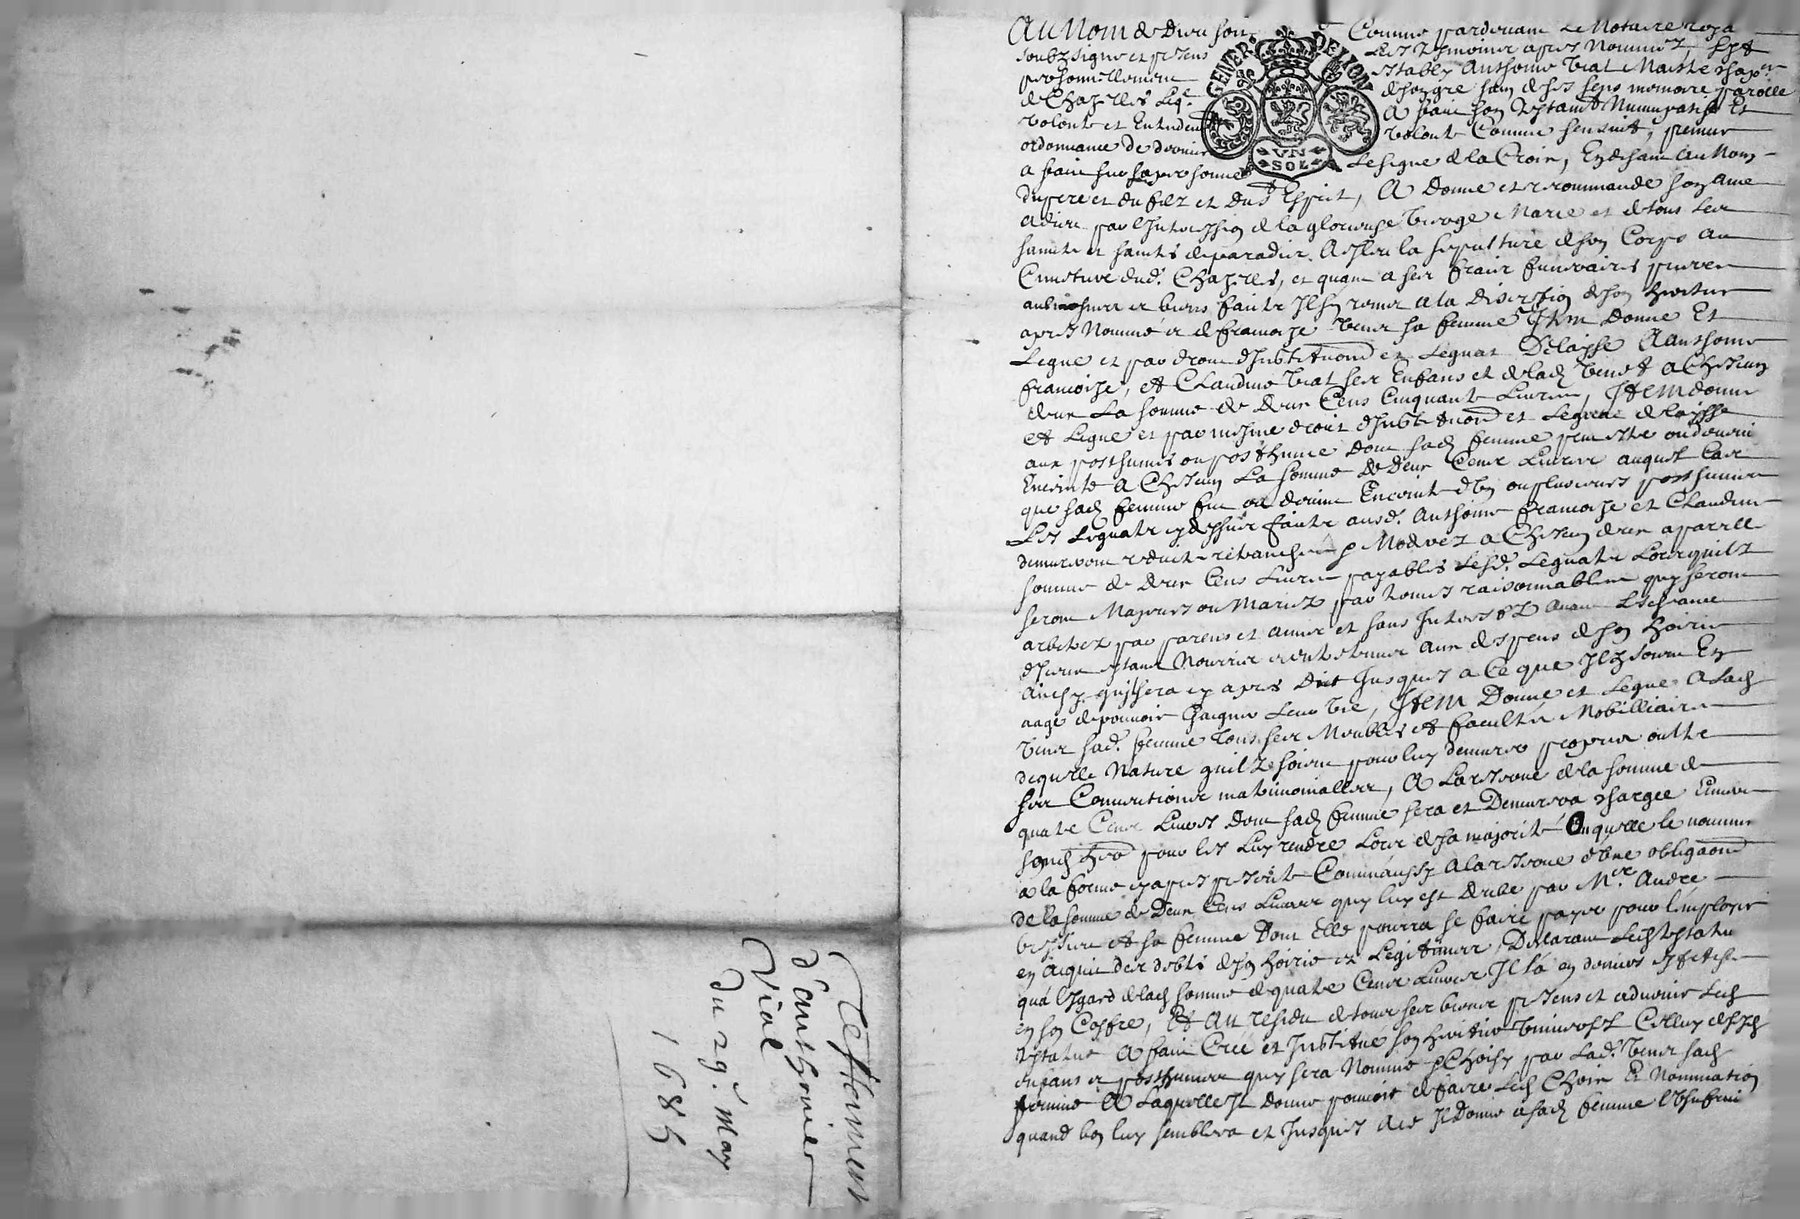 Testament
d'anthoine
Vial
du 29e. May
1685
Au Nom de Dieu soit
Comme pardevant Le Notaire royal
soubzsigné et presens
Les tesmoins apres Nommez, Est
personnellement
establi Anthoine Vial Maistre
de Chazelles
de son gré sain de ses sens memoire parolle
GENER. DE LYON
VN SOL
volonte et Entendement
A faict son testamt Nuncupatif Et
ordonnance de derniere
volonte Comme sensuit, premier
a faict sur sa personne
Le signe de la Croix, En disant au Nom
du pere et du filz et du St Esprit, A Donné et recommandé son ame
a dieu par l'Intercession de la glorieuse Vierge Marie et de tous les
saincts et sainctes de paradis. A esleu la sepulture de son Corps au
Cimetiere dud. Chazelles, et quant a ses fraix funeraires prieres
aulmosnes et biens faicts Il sen remet a la discretion de son heritier
apres Nommé et de francoize sa femme Item Donne Et
Legue et par droit d'Institution et Legat Delaisse A anthoine
francoize, et Claudine Vial ses Enfans et de lad. a Chascun
deux La somme de deux Cens Cinquante Livres, Item donne
et Legue et par mesme droit d'Institution et Legat delaisse
aux posthumes ou posthume dont sad. femme peut estre ou devenir
Enceinte a Chascun La somme de deux Cens Livres auquel Cas
que sad. femme fut ou devint Enceinte d'un ou plusieurs posthumes
Les Legats cy dessus faicts ausd. Anthoine francoize et Claudine
demeureront reduits retranchés et Moderez a Chascun deux a pareille
somme de deux Cens Livres payables lesd. Legats Lorsquilz
seront Majeurs ou Mariez par termes raisonnables quy seront
arbitrez par parens et amis et sans Interestz avant Lescheance
diceux estant Nourris et entretenus aux despens de son hoirie
ainsy quil sera cy apres dict Jusques a Ce que Ilz soient En
aage de pouvoir gaigner Leur vie, Item Donne et Legue A lad.
sad. femme Tous ses Meubles et facultés Mobilliaires
de quelle Nature quilz soient pour luy demeurer propres outre
ses Conventions matrimonialles, A La reserve de la somme de
quatre Cens Livres dont sad. femme sera et Demeurera chargée Envers
sond. her. pour les Luy rendre Lors de sa majorité Ou quelle le nommera
a la forme cy apres Comm'aussy A la reserve d'une obligaon
de la somme de Deux Cens Livres quy luy est deube par Mre. André
et sa femme Dont Elle pourra se faire payer pour l'employer
en acquit des debtes de son hoirie et Legitimes, Declarant Led. testateur
qu'a l'Egard de lad. somme de quatre Cens Livres Il l'a en deniers
en son Coffre, Et Au residu de tous ses biens presens et advenir Led.
testateur A faict Creé et Institué son heritier Universel Celluy de sesd.
enfans et posthumes quy sera Nommé et Choisy par Lad. sad.
femme A Laquelle Il donne pouvoir de faire Led. Choix Et Nomination
quand bon luy semblera et Jusques Il Donne a sad. femme l'Usufruit